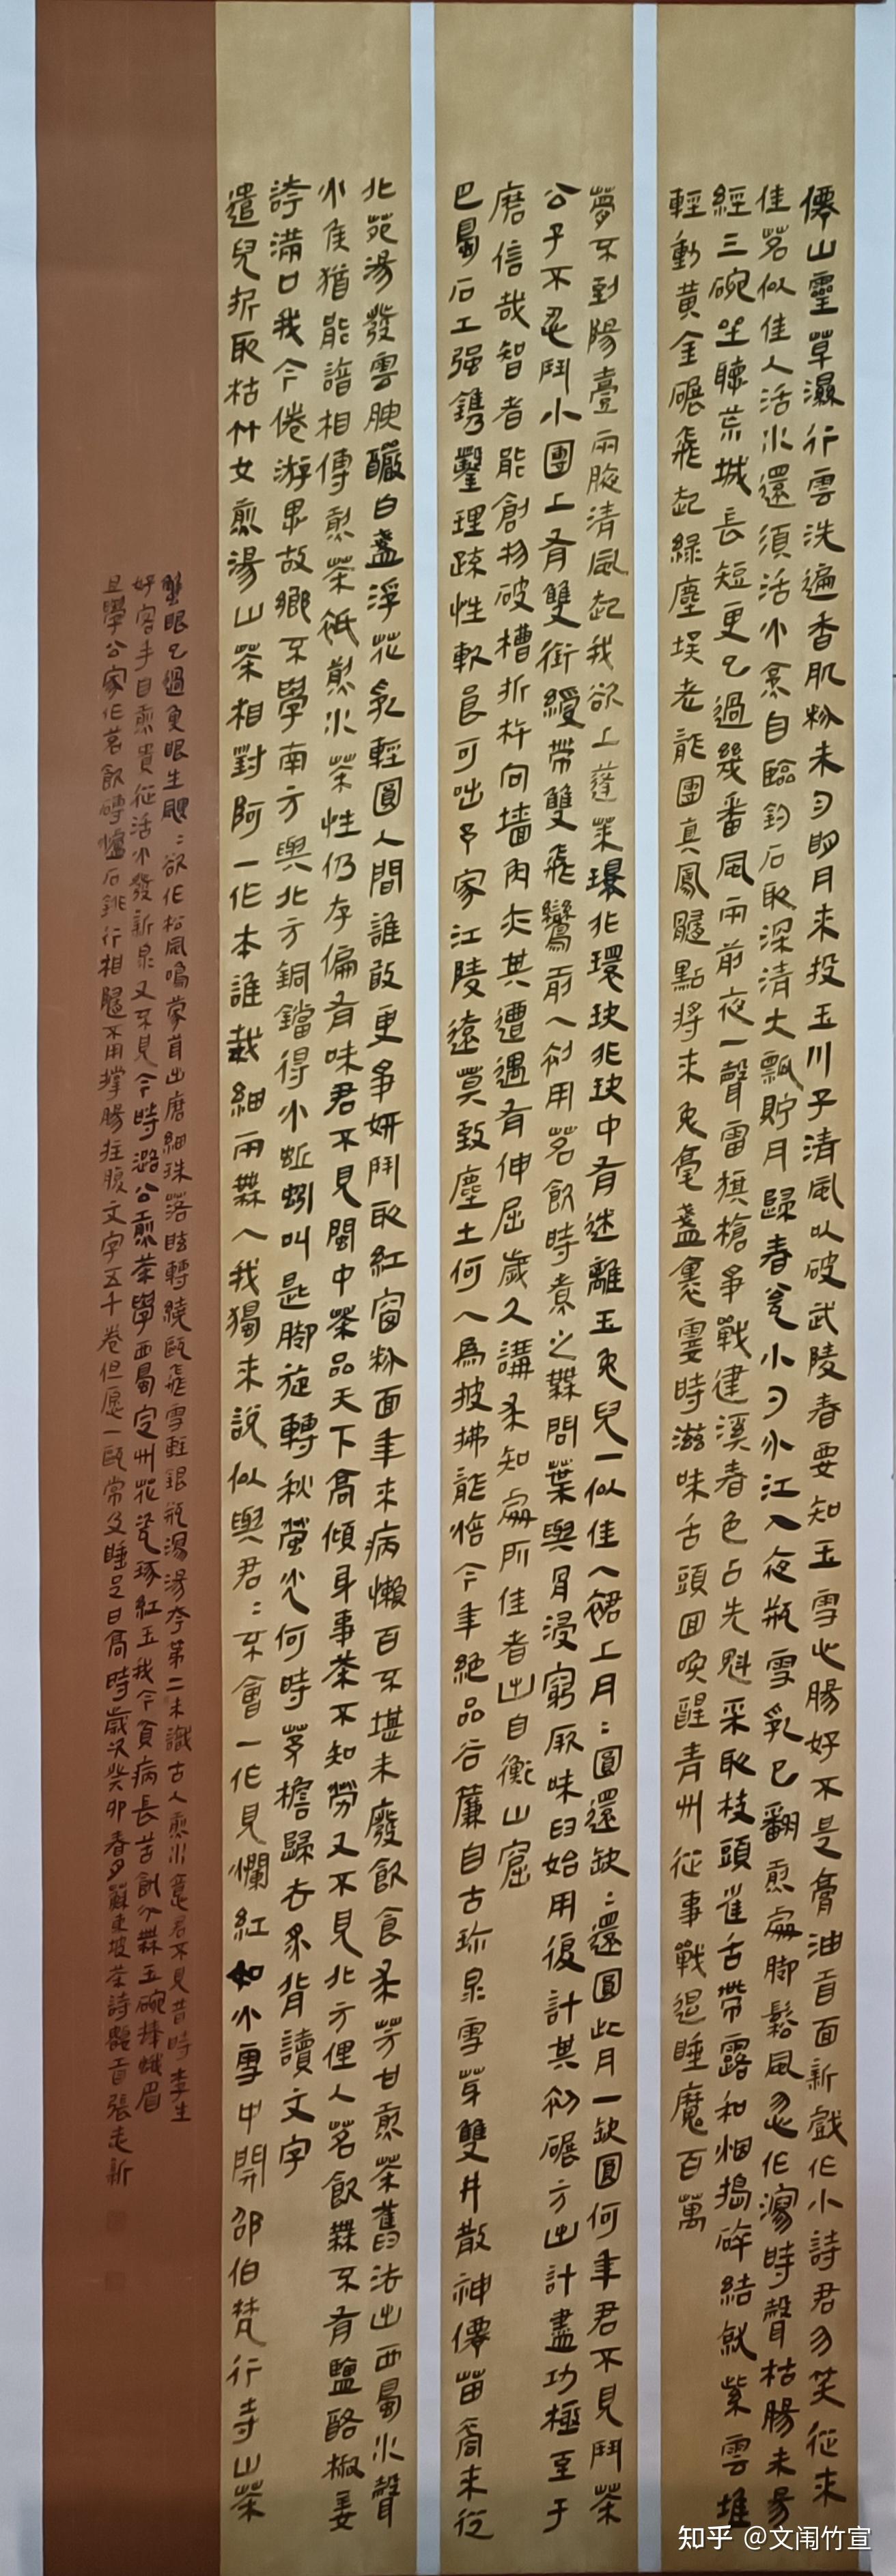 僊山靈草濕行雲洗遍香肌粉未勻明月來投玉川子清風吹破武陵春要知玉雪心腸好不是膏油首面新戲作小詩君勿笑從來
佳茗似佳人活水還須活火烹自臨釣石取深清大瓢貯月歸春瓮小勺分江入夜瓶雪乳已翻煎處脚鬆風忽作瀉時聲枯腸未易
經三碗坐聽荒城長短更已過幾番風雨前夜一聲雷旗槍爭戰建溪春色占先魁采取枝頭雀舌帶露和烟搗碎結就紫雲堆
輕動黃金碾飛起綠塵埃老龍團真鳳髓點將來兔毫盞裏霎時滋味舌頭回喚醒青州從事戰退睡魔百萬
夢不到陽臺兩腋清風起我欲上蓬萊環非環玦非玦中有迷離玉兔兒一似佳人裙上月:圓還缺:還圓此月一缺圓何年君不見鬥茶
公子不忍鬥小團上有雙銜綬帶雙飛鸞前人初用茗飲時煮之無問葉與骨浸窮厥味臼始用復計其初碾方出計盡功極至于
磨信哉智者能創物破槽折杵向墻角亦其遭遇有伸屈歲久講求知處所佳者出自衡山窟
巴蜀石工强鐫鑿理疏性軟良可咄予家江陵遠莫致塵土何人為披拂龍焙今年絕品谷簾自古珍泉雪芽雙井散神僊苗裔來從
北苑湯發雲腴釅白盞浮花乳輕圓人間誰敢更爭妍鬥取紅窗粉面年來病懶百不堪未廢飲食求芳甘煎茶舊法出西蜀水聲
火候猶能諳相傳煎茶祇煎水茶性仍存偏有味君不見閩中茶品天下高傾身事茶不知勞又不見北方俚人茗飲無不有鹽酪椒姜
誇滿口我今倦游思故鄉不學南方與北方銅鐺得火蚯蚓叫匙脚旋轉秋螢光何時茅檐歸去炙背讀文字
遣兒折取枯竹女煎湯山茶相對阿一作本誰栽細雨無人我獨來說似與君:不會一作見爛紅如火雪中開邵伯梵行寺山茶
蟹眼已過魚眼生颼:欲作松風鳴蒙茸出磨細珠落眩轉繞甌飛雪輕銀瓶瀉湯夸第二未識古人煎水意君不見昔時李生
好客手自煎貴從活火發新泉又不見今時潞公煎茶學西蜀定州花瓷琢紅玉我今貧病長苦飢分無玉碗捧蛾眉
且學公家作茗飲磚爐石銚行相隨不用撐腸拄腹文字五千卷但願一甌常及睡足日高時歲次癸卯春月蘇東坡茶詩數首張志新
知乎 @文闹竹宣